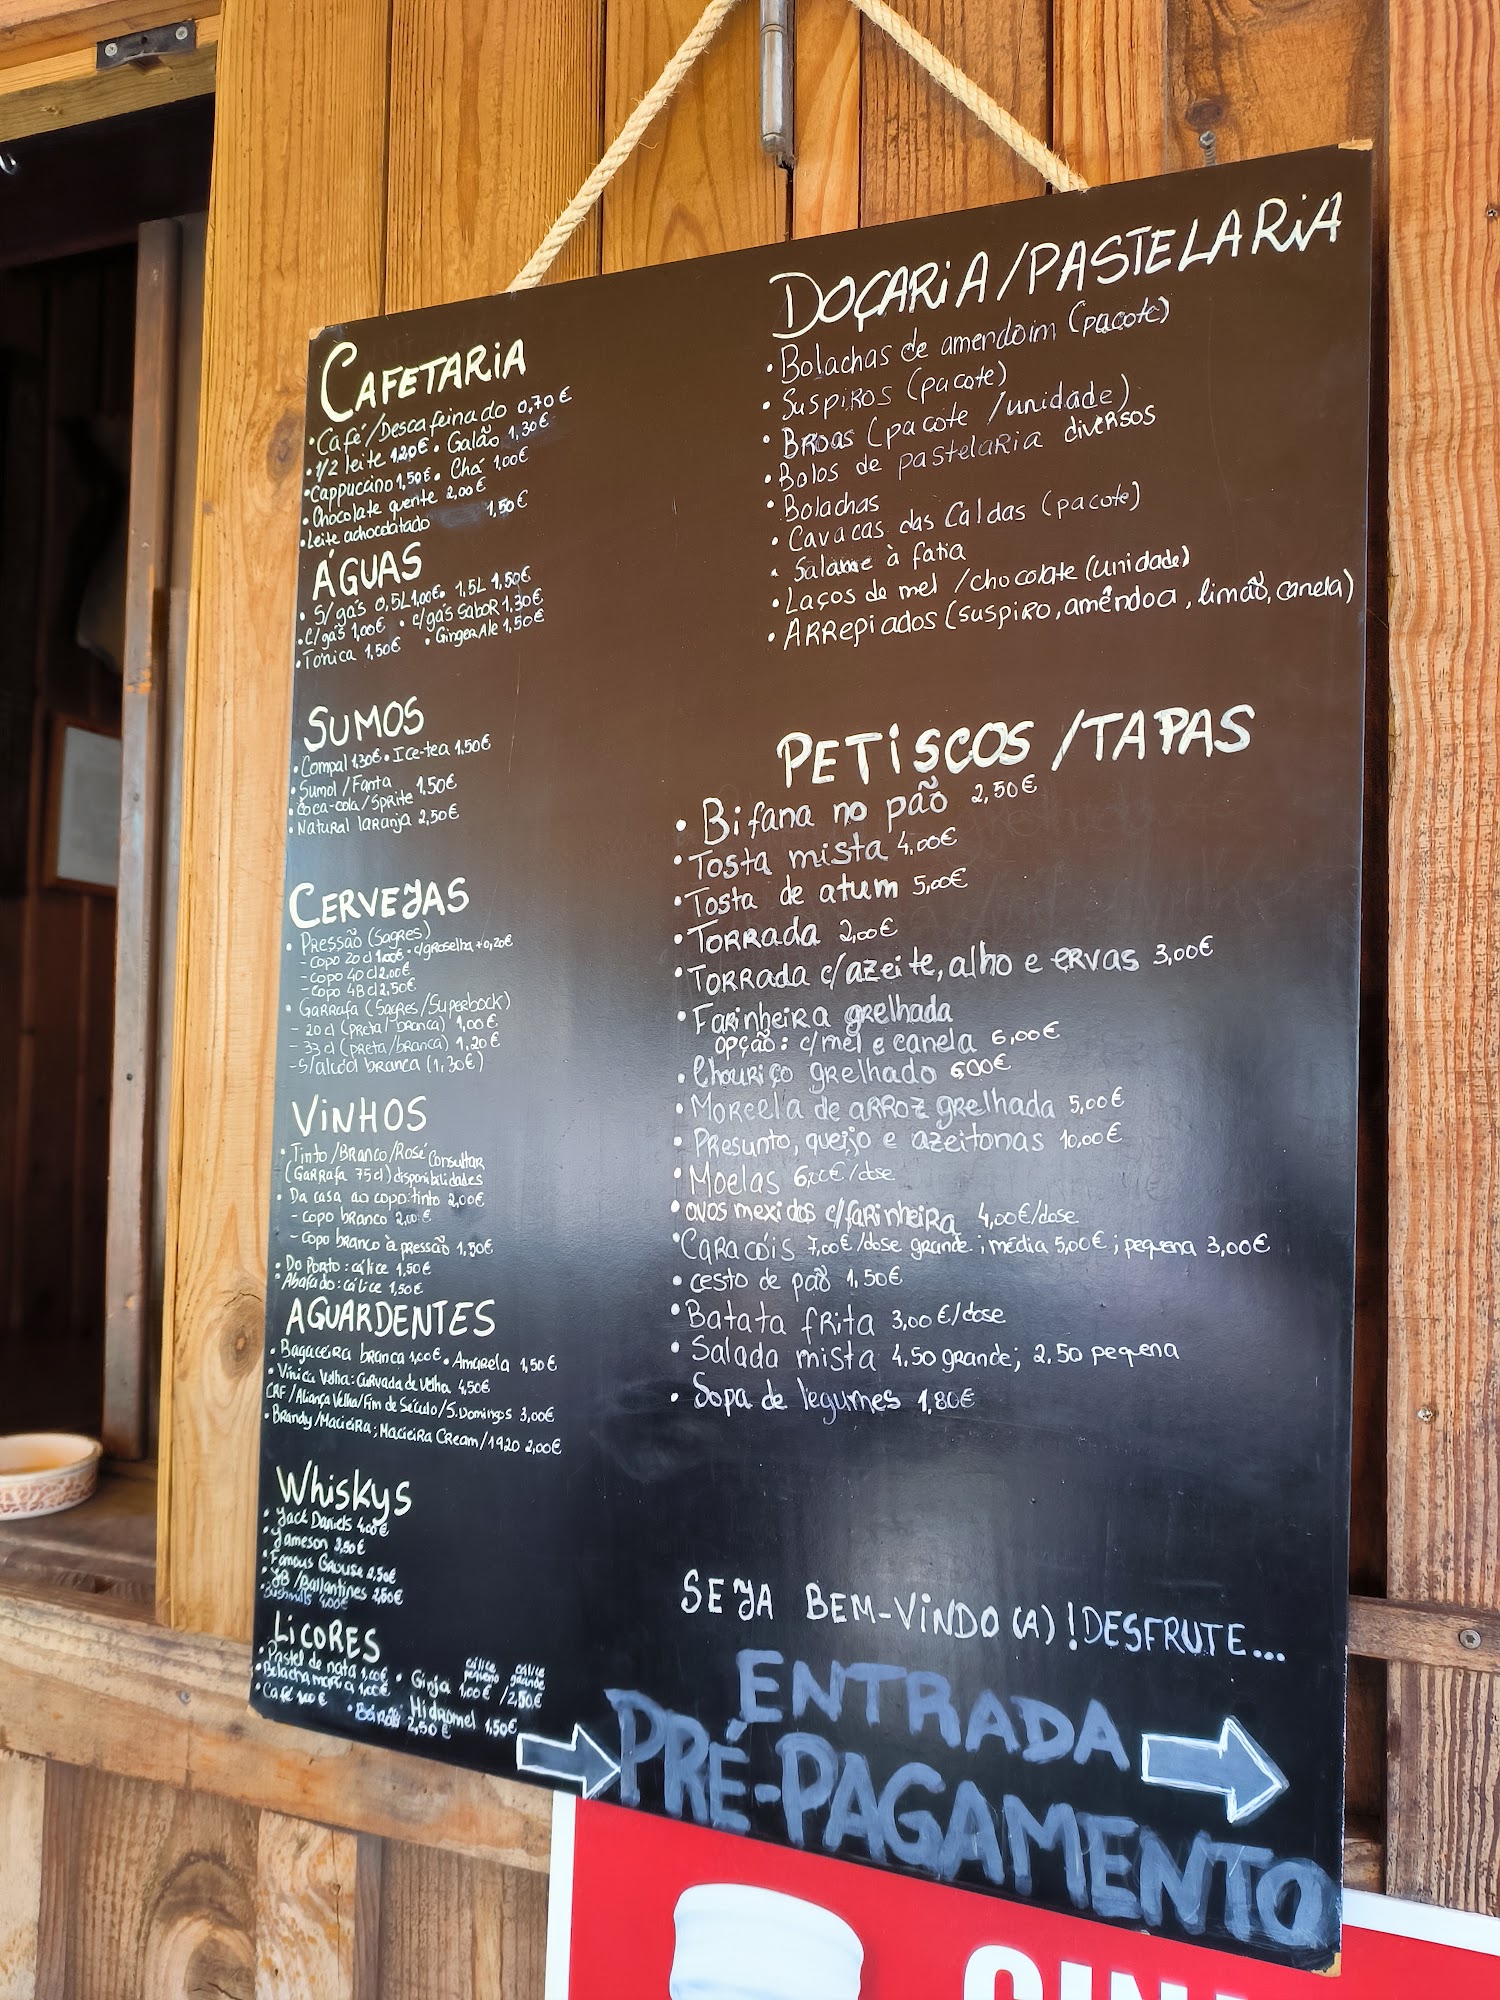 CAFETARIA
• Café/Descafeinado 0,70€
• 1/2 leite 1,20€ • Galão 1,30€
• Cappuccino 1,50€ • Chá 1,00€
• Chocolate quente 2,00€
• Leite achocolatado 1,50€
ÁGUAS
• S/gás 0,5L 1,00€ • 1,5L 1,50€
• C/gás 1,00€ • c/gás sabor 1,30€
• Tónica 1,50€ • Ginger Ale 1,50€
SUMOS
• Compal 1,30€ • Ice-tea 1,50€
• Sumol/Fanta
• Coca-cola/Sprite 1,50€
• Natural laranja 2,50€
CERVEJAS
• Pressão (Sagres)
- copo 20cl 1,00€ • c/groselha +0,20€
- copo 40cl 2,00€
- copo 48cl 2,50€
• Garrafa (Sagres/Superbock)
- 20cl (preta/branca) 1,00€
- 33cl (preta/branca) 1,20€
- s/alcool branca (1,30€)
VINHOS
• Tinto/Branco/Rosé consultar
(Garrafa 75cl) disponibilidades
• Da casa ao copo: tinto 2,00€
- copo branco 2,00€
- copo branco à pressão 1,50€
• Do Porto: cálice 1,50€
• Abafado: cálice 1,50€
AGUARDENTES
• Bagaceira branca 1,00€ • Amarela 1,50€
• Vínica Velha: Curvada de Velha 4,50€
CRF/Aliança Velha/Fim de Século/S. Domingos 3,00€
• Brandy/Macieira; Macieira Cream/1920 2,00€
Whiskys
• Jack Daniels 4,00€
• Jameson 3,50€
• Famous Grouse 2,50€
• JB/Ballantines 2,50€
• Bushmills 4,00€
LiCORES
• Pastel de nata 1,00€ • Ginja cálice pequeno 1,00€ / cálice grande 2,50€
• Bolacha maria 1,00€
• Café 1,00€ • Hidromel 1,50€
• Beirão 2,50€
DOÇARiA/PASTELARiA
• Bolachas de amendoim (pacote)
• Suspiros (pacote)
• Broas (pacote /unidade)
• Bolos de pastelaria diversos
• Bolachas
• Cavacas das Caldas (pacote)
• Salame à fatia
• Laços de mel /chocolate (unidade)
• Arrepiados (suspiro, amêndoa, limão, canela)
PETiSCOS /TAPAS
• Bifana no pão 2,50€
• Tosta mista 4,00€
• Tosta de atum 5,00€
• Torrada 2,00€
• Torrada c/azeite, alho e ervas 3,00€
• Farinheira grelhada
opção: c/mel e canela 6,00€
• Chouriço grelhado 6,00€
• Morcela de arroz grelhada 5,00€
• Presunto, queijo e azeitonas 10,00€
• Moelas 6,00€/dose
• ovos mexidos c/farinheira 4,00€/dose
• Caracóis 7,00€/dose grande; média 5,00€; pequena 3,00€
• cesto de pão 1,50€
• Batata frita 3,00€/dose
• Salada mista 4.50 grande; 2.50 pequena
• Sopa de legumes 1,80€
SEJA BEM-VINDO(A)! DESFRUTE...
ENTRADA
PRÉ-PAGAMENTO